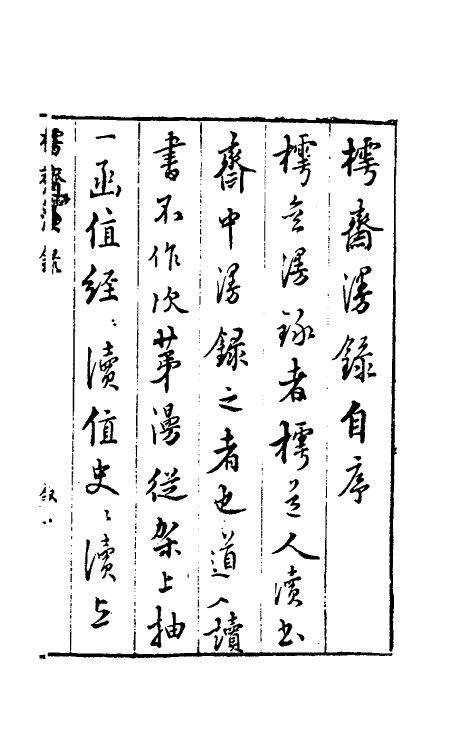 樗齋漫錄自序
樗齋漫錄者樗道人讀書
齋中漫錄之者也道人讀
書不作次第漫從架上抽
一函值經〻讀值史〻讀上
樗齋漫錄
敘